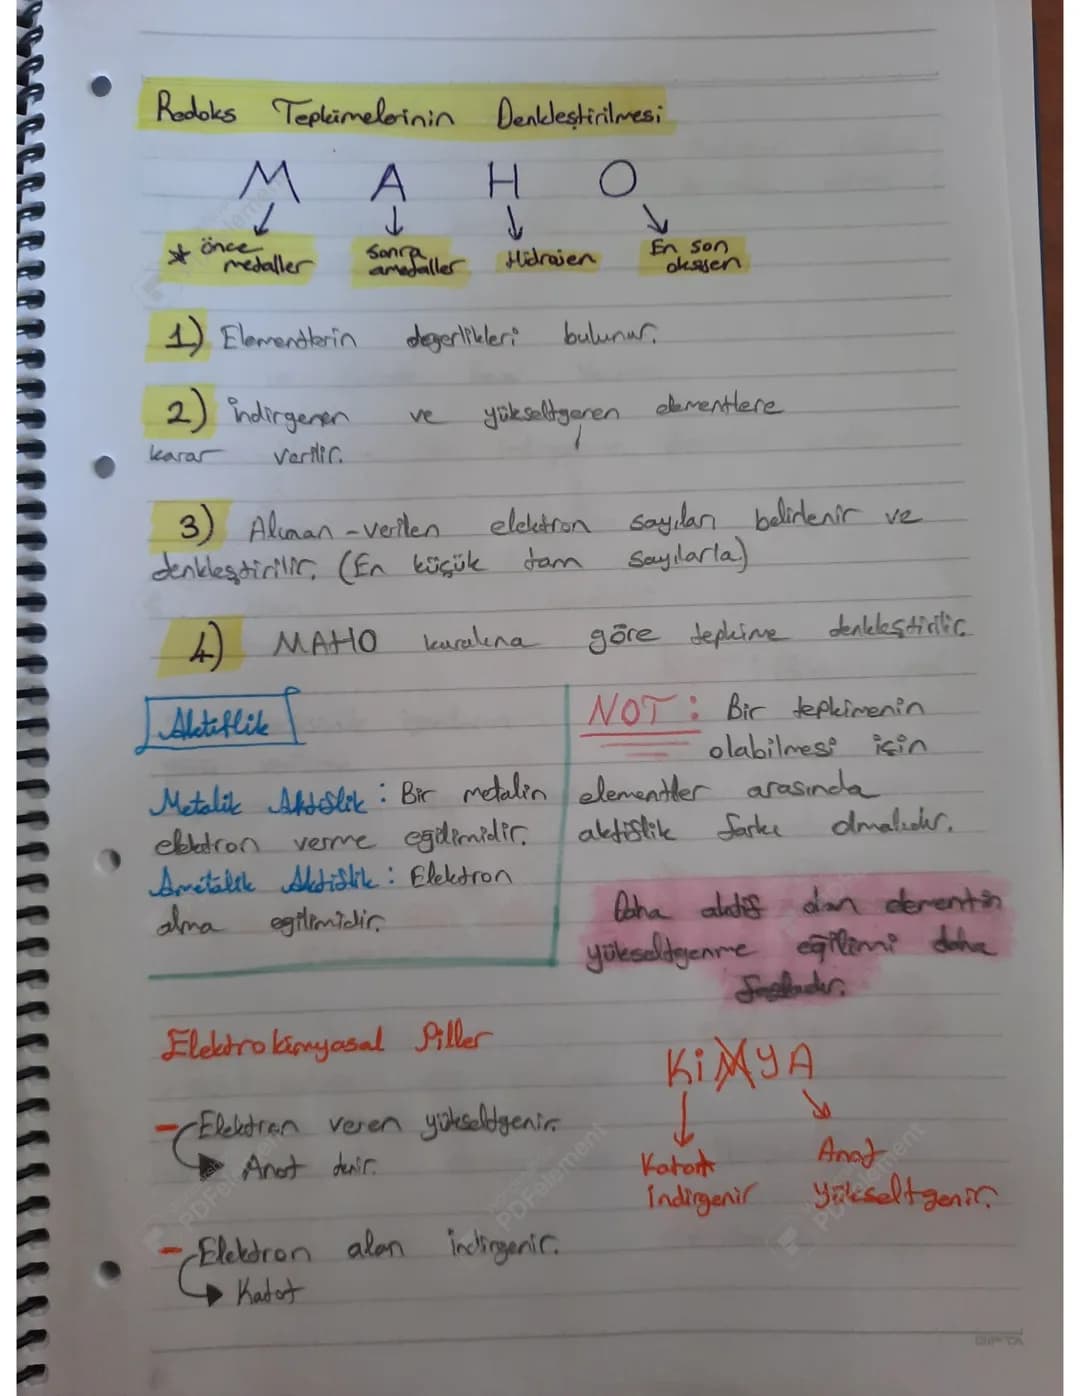 Redoks Tepkimelerinin Denkleştirilmesi
M A H O
* önce metaller
sonra ametaller
Hidrojen
En son oksijen
1) Elementlerin değerlikleri bulunur.
2) indirgenen ve yükseltgenen elementlere
karar verilir.
3) Alınan-verilen elektron sayıları belirlenir ve
denkleştirilir. (En küçük tam sayılarla)
4) MAHO kuralına göre tepkime denkleştirilir.
Aktiflik
Metalik Aktiflik : Bir metalin
elektron verme eğilimidir.
Ametalik Aktiflik : Elektron
alma egilimidir.
NOT : Bir tepkimenin
olabilmesi için
elementler arasında
aktiflik farkı olmalıdır.
Daha aktif olan elementin
yükseltgenme eğilimi daha
fazladır.
Elektrokimyasal Piller
- Elektron veren yükseltgenir.
Anot denir.
- Elektron alan indirgenir.
Katot
KiMYA
Katot
indirgenir
Anot
Yükseltgenir.
PDFelement
PDFelement
PDFelement
GIPTA